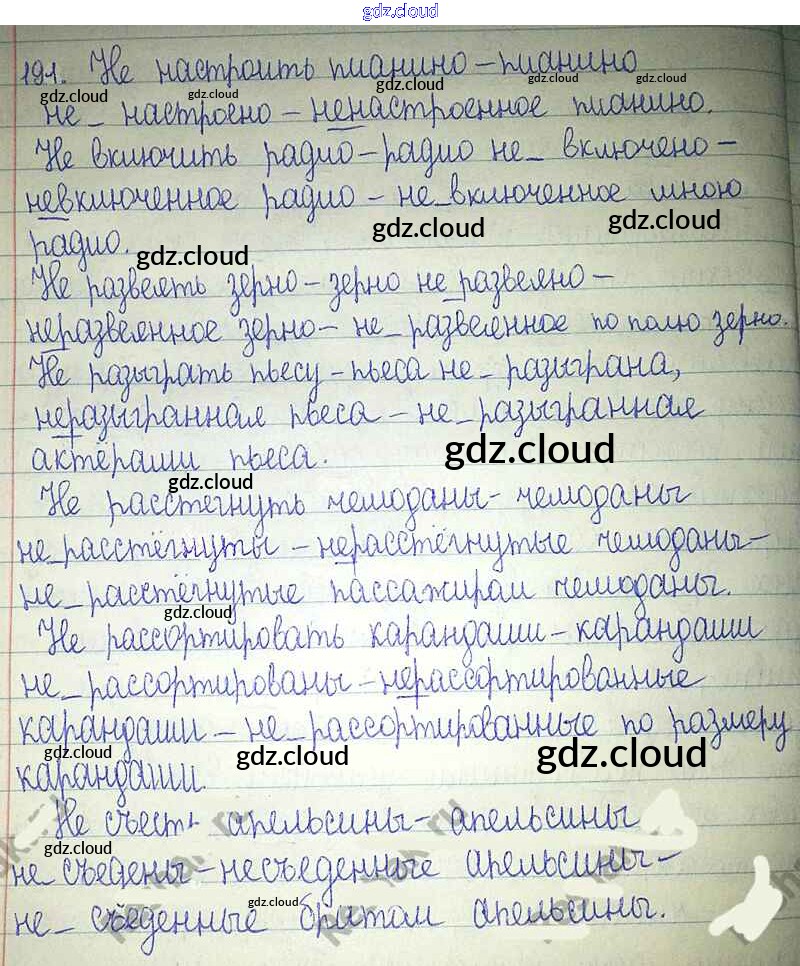 gdz.cloud
191. Не настроить пианино – пианино
gdz.cloud gdz.cloud gdz.cloud gdz.cloud
не_ настроено – ненастроенное пианино.
Не включить радио – радио не_ включено –
gdz.cloud
невключенное радио – не_включенное мною
gdz.cloud gdz.cloud gdz.cloud
радио.
Не развеять зерно – зерно не_развеяно –
неразвеянное зерно – не_ развеянное по полю зерно.
Не разыграть пьесу – пьеса не_ разыграна,
неразыгранная пьеса – не_разыгранная
актёрами пьеса.
gdz.cloud gdz.cloud
Не расстегнуть чемоданы – чемоданы
не_расстёгнуты – нерасстёгнутые чемоданы –
не_расстёгнутые пассажирам чемоданы.
gdz.cloud
Не рассортировать карандаши – карандаши
не_рассортированы – нерассортированные
карандаши – не_рассортированные по размеру
gdz.cloud gdz.cloud gdz.cloud
карандаши.
Не съесть апельсины – апельсины
gdz.cloud
не_съедены – несъеденные апельсины –
gdz.cloud
не_ съеденные братом апельсины.